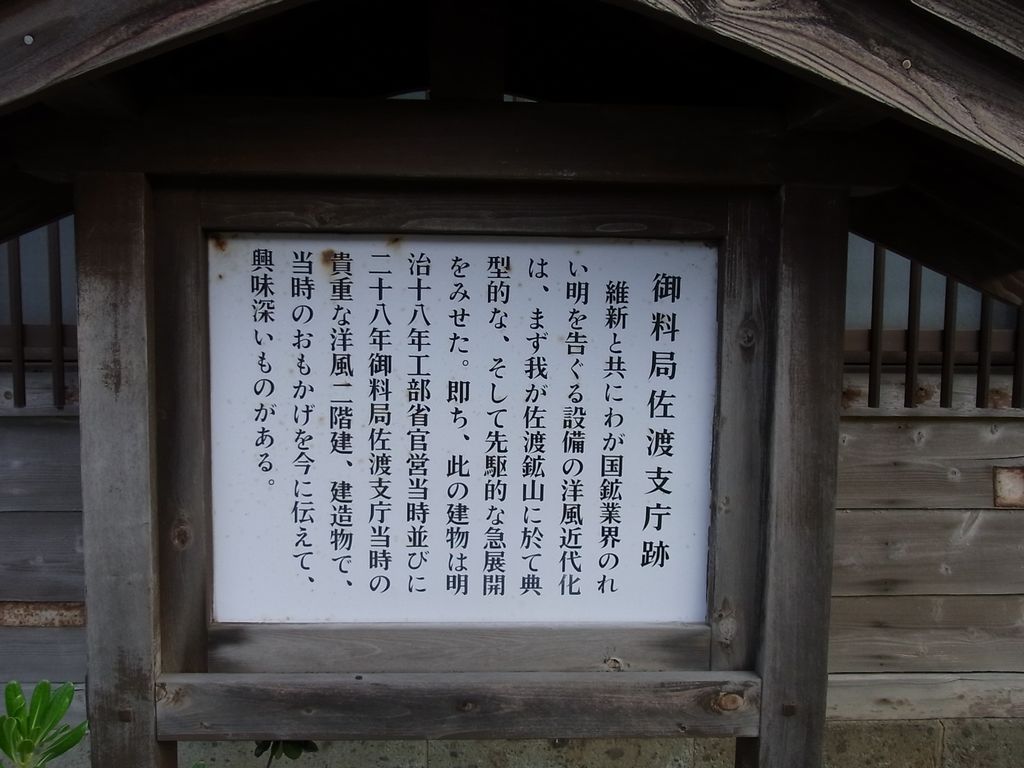 御料局佐渡支庁跡
維新と共にわが国鉱業界のれ
い明を告ぐる設備の洋風近代化
は、まず我が佐渡鉱山に於て典
型的な、そして先駆的な急展開
をみせた。即ち、此の建物は明
治十八年工部省官営当時並びに
二十八年御料局佐渡支庁当時の
貴重な洋風二階建、建造物で、
当時のおもかげを今に伝えて、
興味深いものがある。